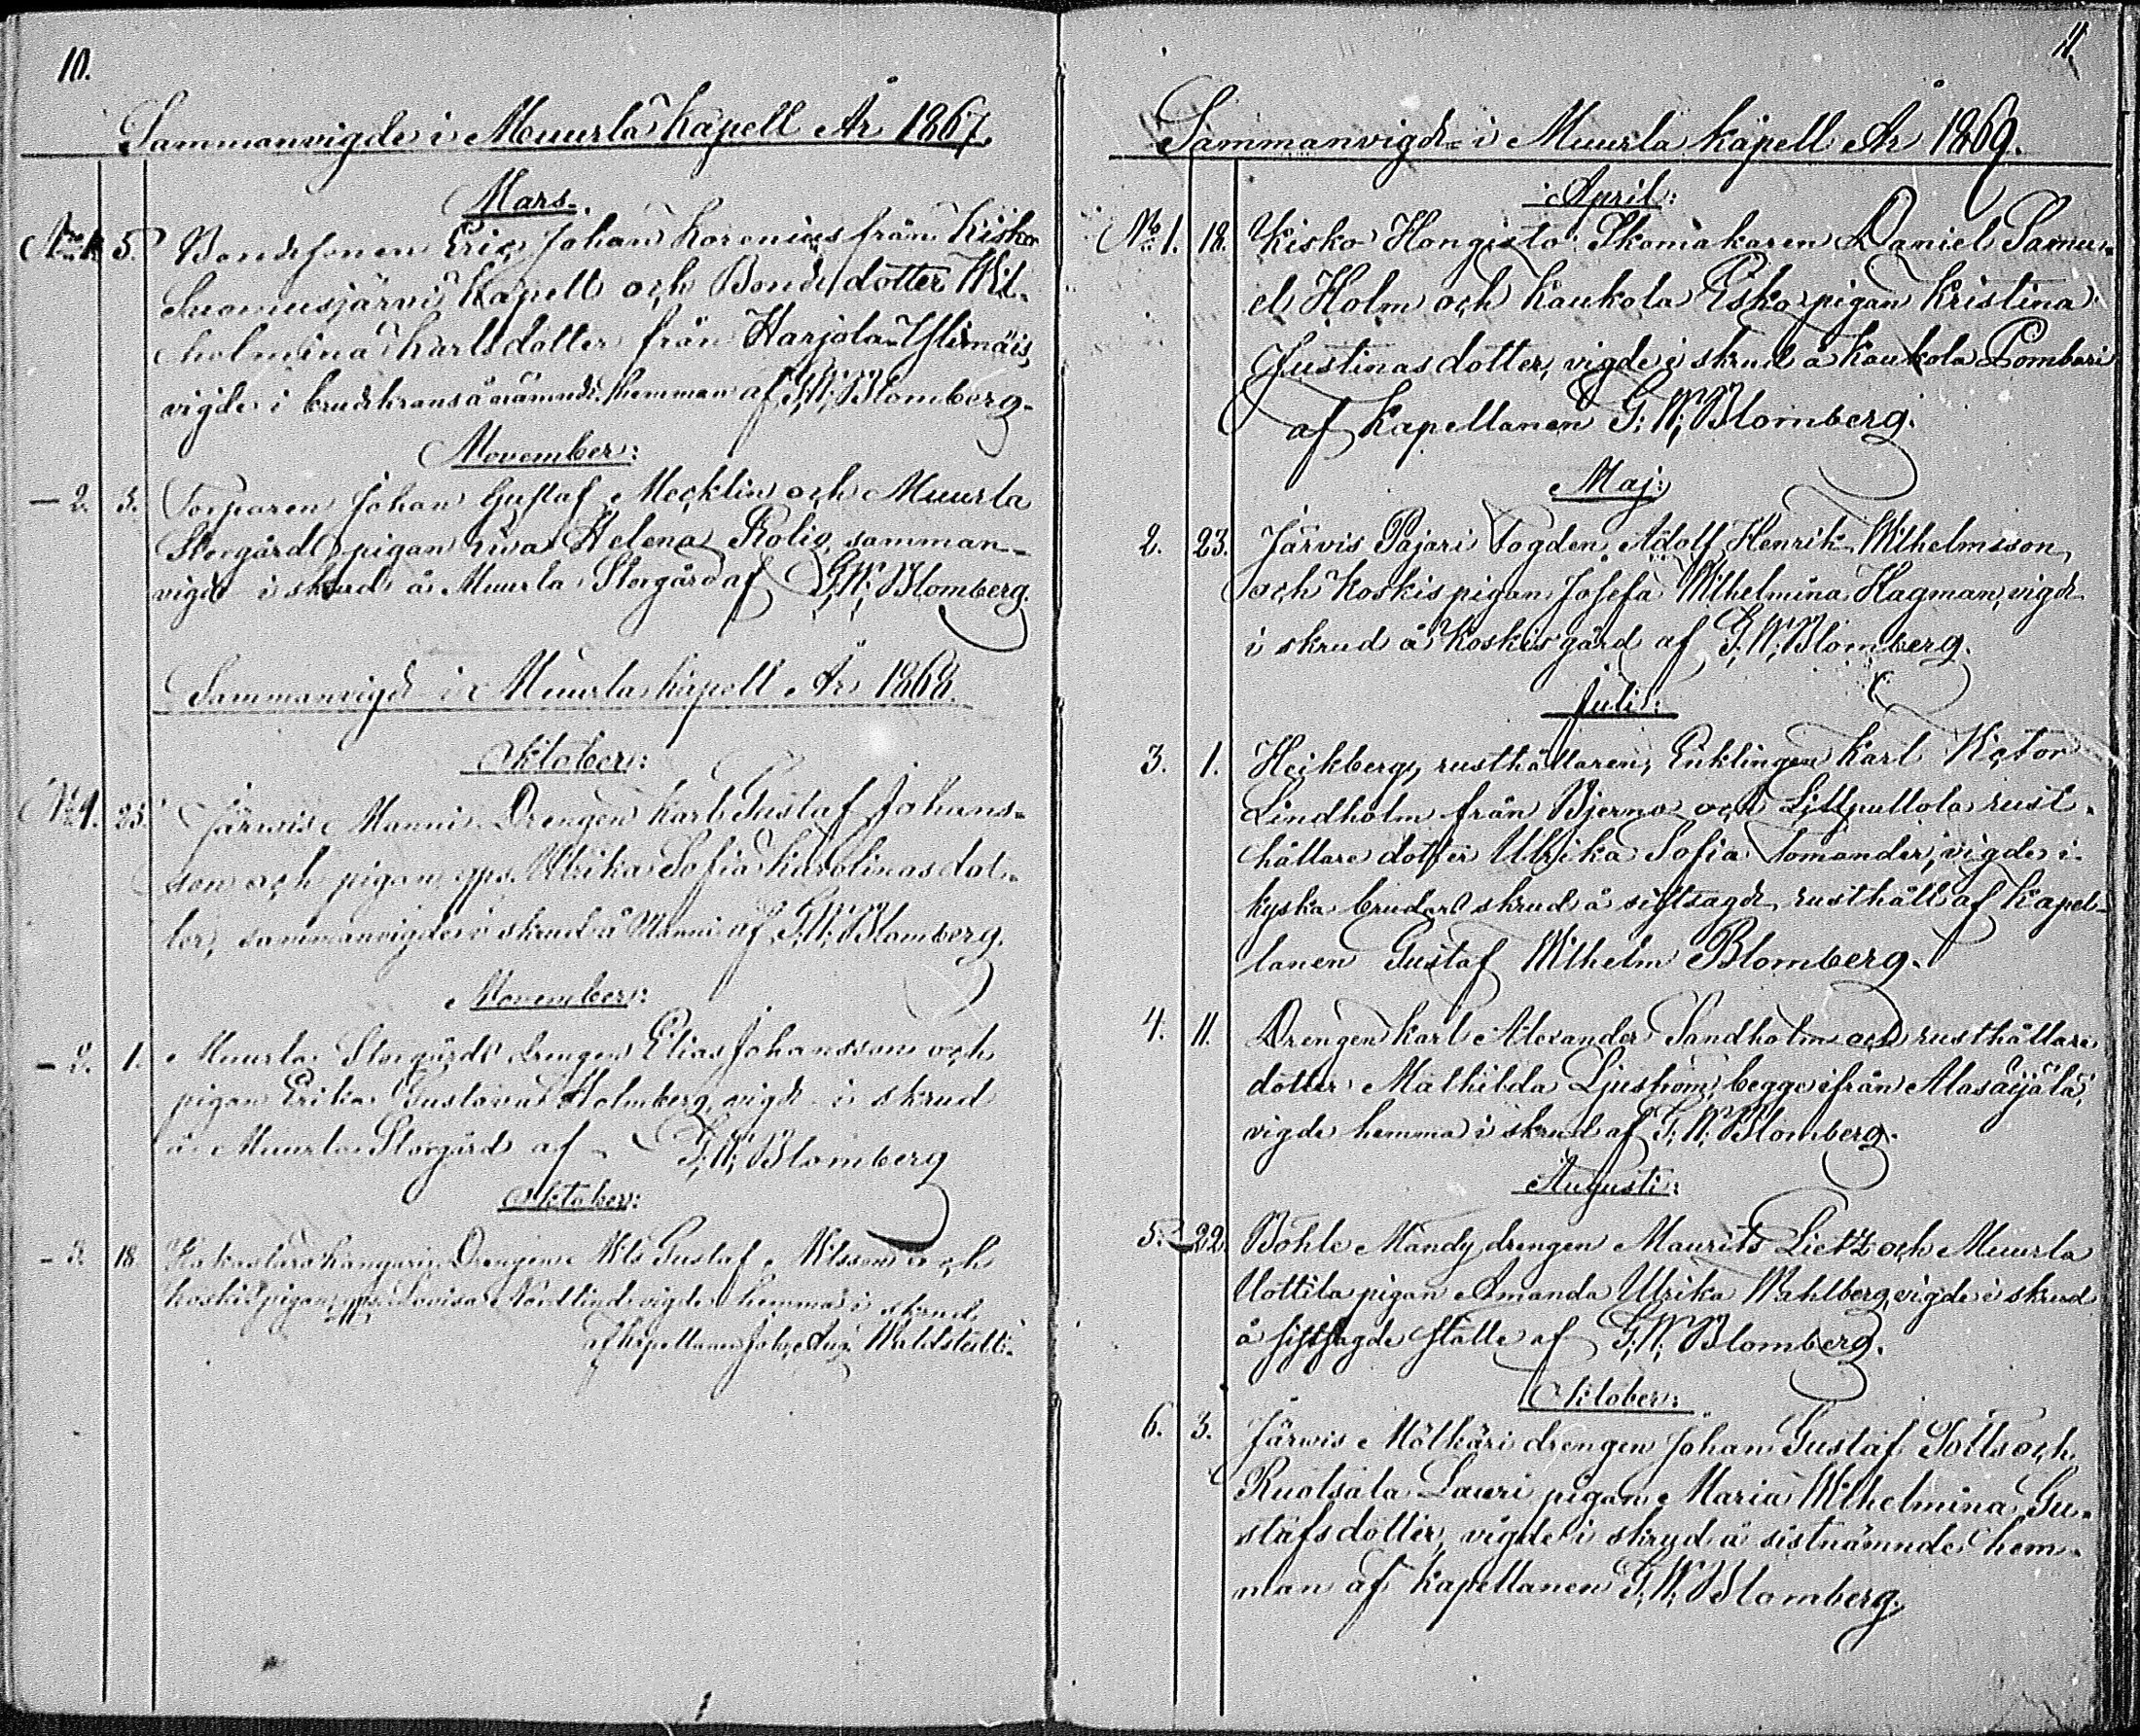 10.
Sammanvigde i Muurla Kapell År 1867.
Mars.
No 1. 5. Bondesonen Eric Johan Korenius från Kisko
Suomusjärvi Kapell och Bondedotter Wil-
helmina Karlsdotter från Harjola
vigde i brudkrans å nämnde hemman af G. W. Blomberg.
November:
— 2. 3. Torparen Johan Gustaf Mecklin och Muurla
Storgårds pigan Eva Helena Rolig, samman-
vigde i skrud å Muurla Storgård af G. W. Blomberg.
Sammanvigde i Muurla Kapell År 1868.
Oktober:
No 1. 25. Järwis Manni Drengen Karl Gustaf Johans-
son och pigan Ulrika Sofia Karolinasdot-
ter, sammanvigde i skrud å Manni af G. W. Blomberg.
November:
- 2. 1. Muurla Storgårds drengen Elias Johansson och
pigan Erika Gustava Holmberg, vigde i skrud
å Muurla Storgård af G. W. Blomberg
Oktober:
- 3. 18. Drengen Nils Gustaf Nilsson och
Koskis pigan Lovisa Nordlind vigde hemma i skrud
af Kapellanen Joh. Aug. Wallstedt.
11.
Sammanvigde i Muurla Kapell År 1869.
April:
No 1. 18. Kisko Hongisto Skomakaren Daniel Samu-
el Holm och Kaukola Esko pigan Kristina
Justinasdotter, vigde i skrud å Kaukola Pombari
af Kapellanen G. W. Blomberg.
Maj:
2. 23. Järvis Pajari Fogden Adolf Henrik Wilhelmsson
och Koskis pigan Josefa Wilhelmina Hagman, vigde
i skrud å Koskis gård af G. W. Blomberg.
Juli:
3. 1. Heikberg, rusthållaren, Enklingen Karl Victor
Lindholm från Bjerno och Littpullola rust-
hållare dotter Ulrika Sofia Tomander, vigde i
kyska brudars skrud å sistsagde rusthåll af Kapel-
lanen Gustaf Wilhelm Blomberg.
4. 11. Drengen Karl Alexander Sandholm och rusthållare
dotter Mathilda Ljuström, begge ifrån Alasäijälä,
vigde hemma i skrud af G. W. Blomberg.
Augusti:
5. 22. Böhle Mändy drengen Maurits Lietz och Muurla
Uottila pigan Amanda Ulrika Wahlberg, vigde i skrud
å sistsagde ställe af G. W. Blomberg.
Oktober:
6. 3. Järwis Mölkäri drengen Johan Gustaf och
Ruotsala Lauri pigan Maria Wilhelmina Gu-
stafsdotter, vigde i skrud å sistnämnde hem-
man af Kapellanen G. W. Blomberg.